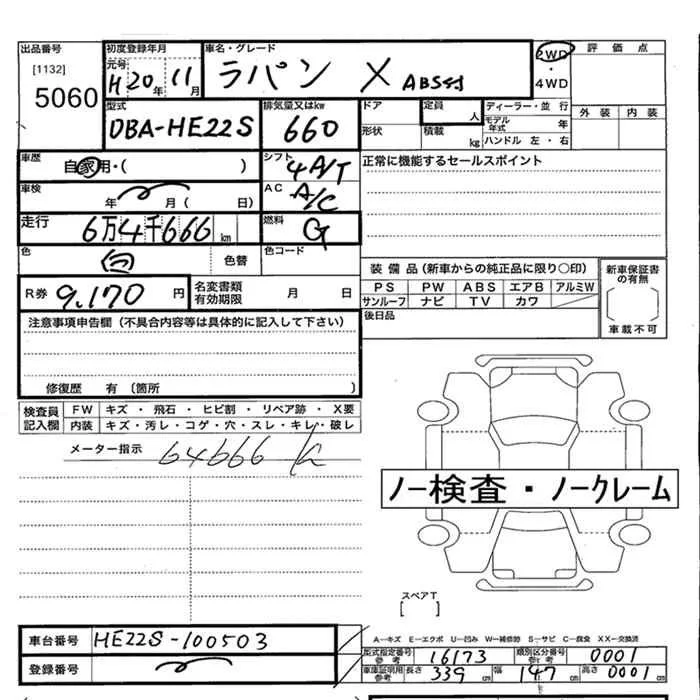 出品番号 初度登録年月 車名・グレード 2WD 評価点
[1132] 元号 ・
5060 H20年11月 ラパン X ABS付 4WD
型式 排気量又はkw ドア 定員 人 ディーラー・並行 外装 内装
DBA-HE22S 660 形状 積載 kg モデル年式 年
ハンドル 左・右
車歴 自家用・( ) シフト 4A/T 正常に機能するセールスポイント
車検 年 月( 日) AC A/C
走行 6万4千666km 燃料 G
色 白 色替 色コード 装備品(新車からの純正品に限り○印) 新車保証書の有無
R券 9,170円 名変書類有効期限 月 日 PS PW ABS エアB アルミW
サンルーフ ナビ TV カワ 車載不可
注意事項申告欄(不具合内容等は具体的に記入して下さい) 後日品
修復歴 有 〔箇所 〕
検査員記入欄 FW キズ ・ 飛石 ・ ヒビ割 ・ リペア跡 ・ X要
内装 キズ・汚レ・コゲ・穴・スレ・キレ・破レ
メーター指示 64666
ノー検査・ノークレーム
スペアT
[ ]
車台番号 HE22S-100503 A—キズ E—エクボ U—凹み W—補修跡 S—サビ C—腐食 XX—交換済
登録番号 型式指定番号 参考 16173 類別区分番号 参考 0001
車庫証明用 参考 長さ 339cm 幅 147cm 高さ 0001cm